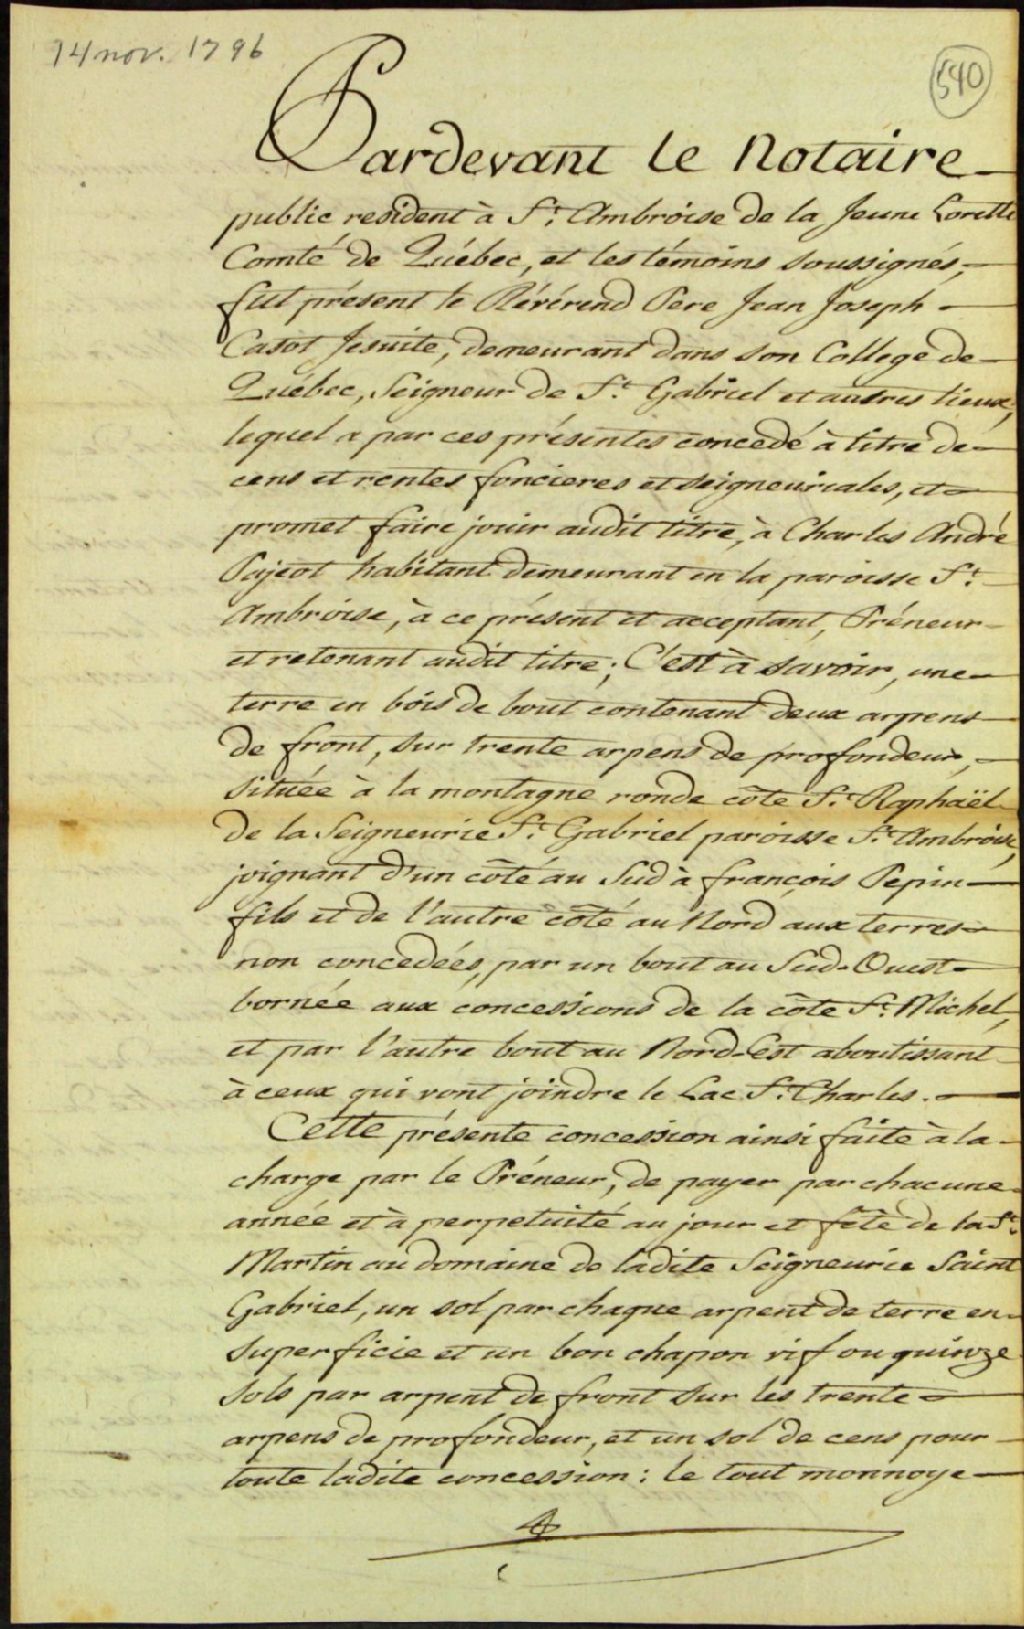 14 nov. 1796
540
Pardevant le Notaire
public resident à St. Ambroise de la Jeune Lorette
Comté de Québec, et les témoins soussignés,
fut présent le Révérend Pere Jean Joseph
Casot Jesuite, demeurant dans son College de
Québec, Seigneur de St. Gabriel et autres lieux,
lequel a par ces présentes concedé à titre de
cens et rentes foncieres et seigneuriales, et
promet faire jouir audit titre, à Charles André
Pajeot habitant demeurant en la paroisse St.
Ambroise, à ce présent et acceptant, Préneur
et retenant audit titre; C'est à savoir, une
terre en bois de bout contenant deux arpens
de front, sur trente arpens de profondeur,
située à la montagne ronde côte St. Raphaël
de la Seigneurie St. Gabriel paroisse St. Ambroise,
joignant d'un côté au Sud à françois Pepin
fils et de l'autre côté au Nord aux terres
non concedées, par un bout au Sud-Ouest
bornée aux concessions de la côte St. Michel,
et par l'autre bout au Nord-Est aboutissant
à ceux qui vont joindre le Lac St. Charles.
Cette présente concession ainsi faite à la
charge par le Préneur, de payer par chacune
année et à perpetuité au jour et fête de la St.
Martin au domaine de ladite Seigneurie Saint
Gabriel, un sol par chaque arpent de terre en
superficie et un bon chapon vif ou quinze
sols par arpent de front sur les trente
arpens de profondeur, et un sol de cens pour
toute ladite concession: le tout monnoye